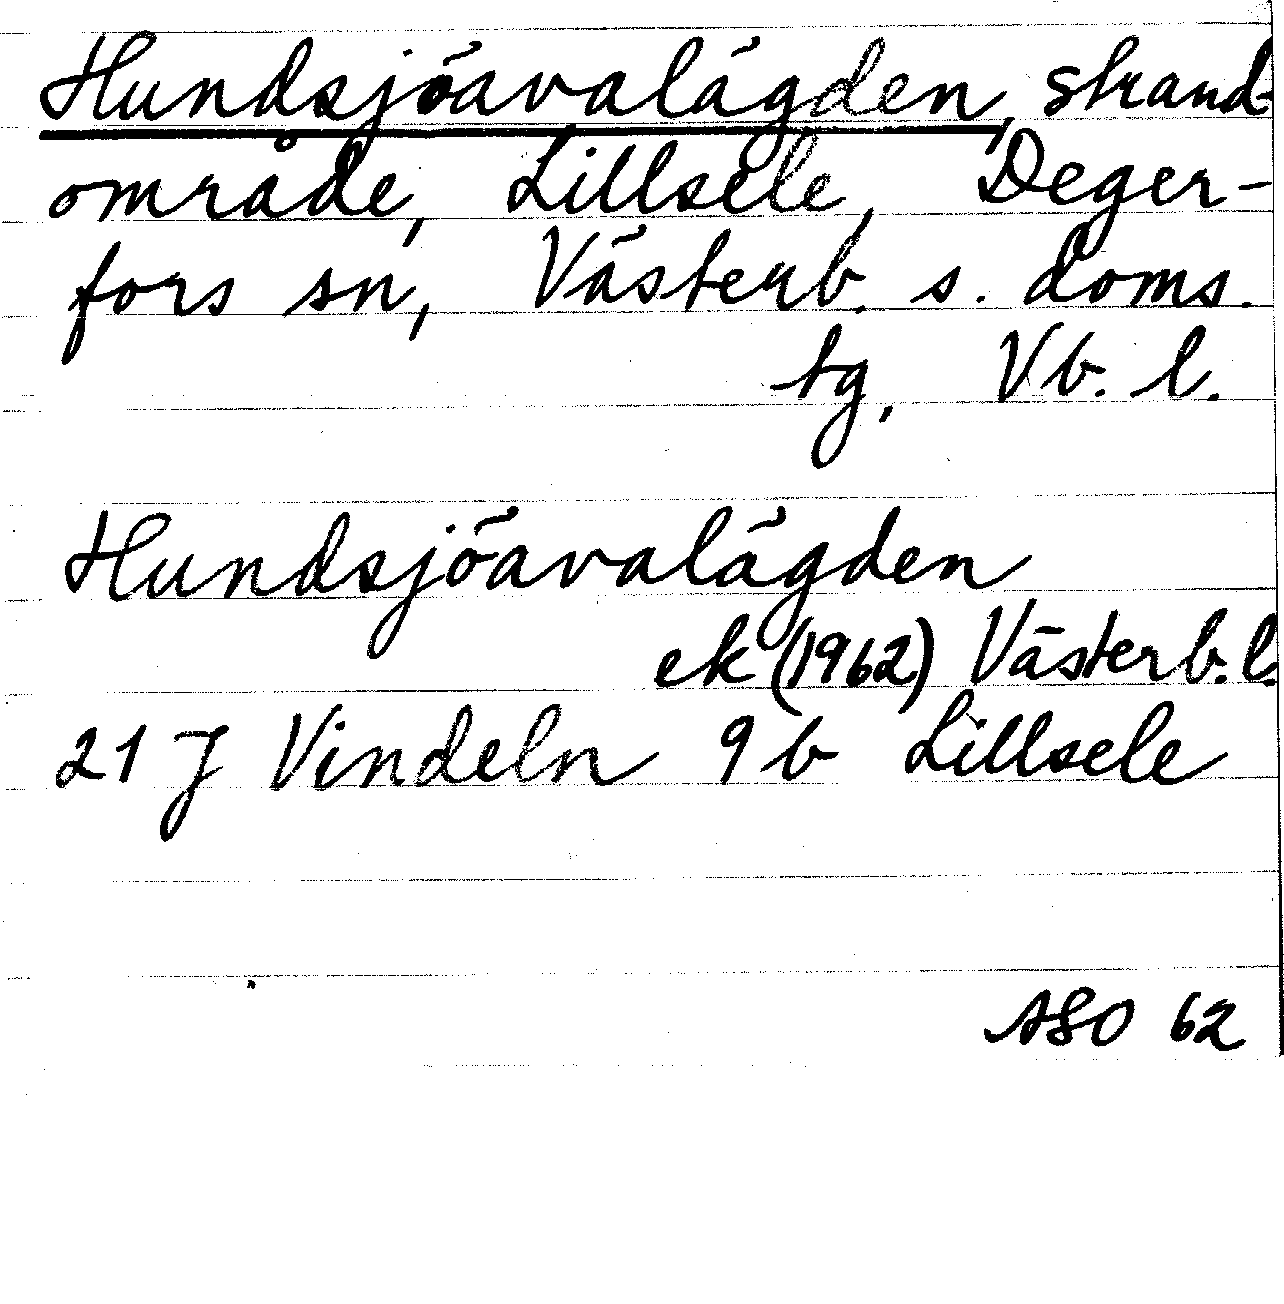 Hundsjöavalägden, strand-
område, Lillsele, Deger-
fors sn, Västerb. s. doms.
tg, Vb. l.
Hundsjöavalägden
ek (1962) Västerb. l.
21 J Vindeln 9b Lillsele
ASO 62